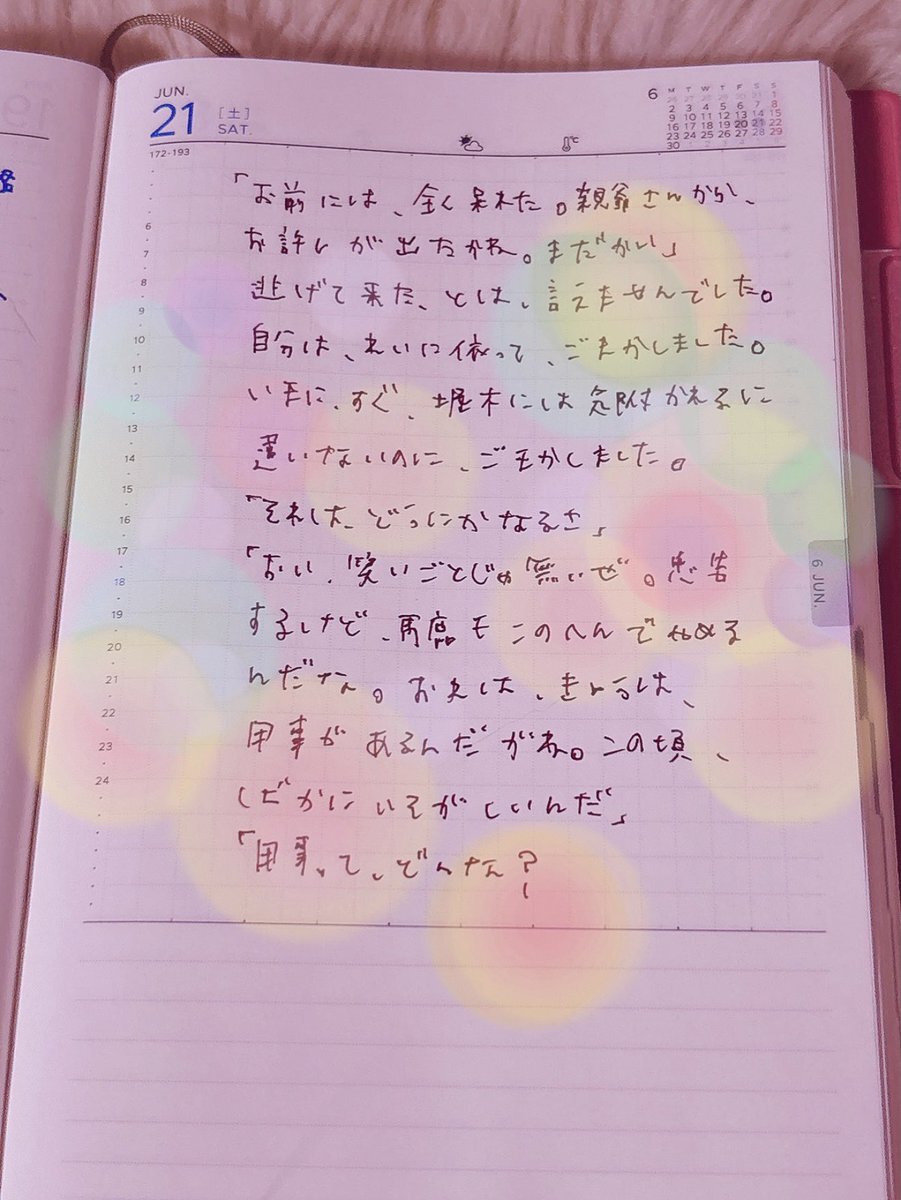 JUN.
21
[土]
SAT.
172-193
6
M T W T F S S
26 27 28 29 30 31 1
2 3 4 5 6 7 8
9 10 11 12 13 14 15
16 17 18 19 20 21 22
23 24 25 26 27 28 29
30
℃
「お前には、全く呆れた。親爺さんから、
お許しが出たかね。まだかい」
逃げて来た、とは、言えませんでした。
自分は、れいに依って、ごまかしました。
いまに、すぐ、堀木には気附かれるに
違いないのに、ごまかしました。
「それは、どうにかなるさ」
「おい、笑いごとじゃ無いぜ。忠告
するけど、馬鹿もこのへんでやめる
んだな。おれは、きょうは、
用事があるんだがね。この頃、
ばかにいそがしいんだ」
「用事って、どんな?
6
7
8
9
10
11
12
13
14
15
16
17
18
19
20
21
22
23
24
6 JUN.